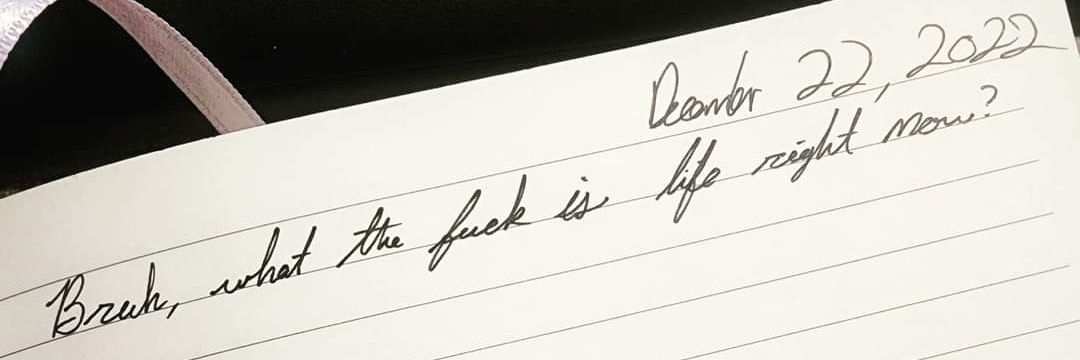 December 22, 2022
Bruh, what the fuck is life right now?